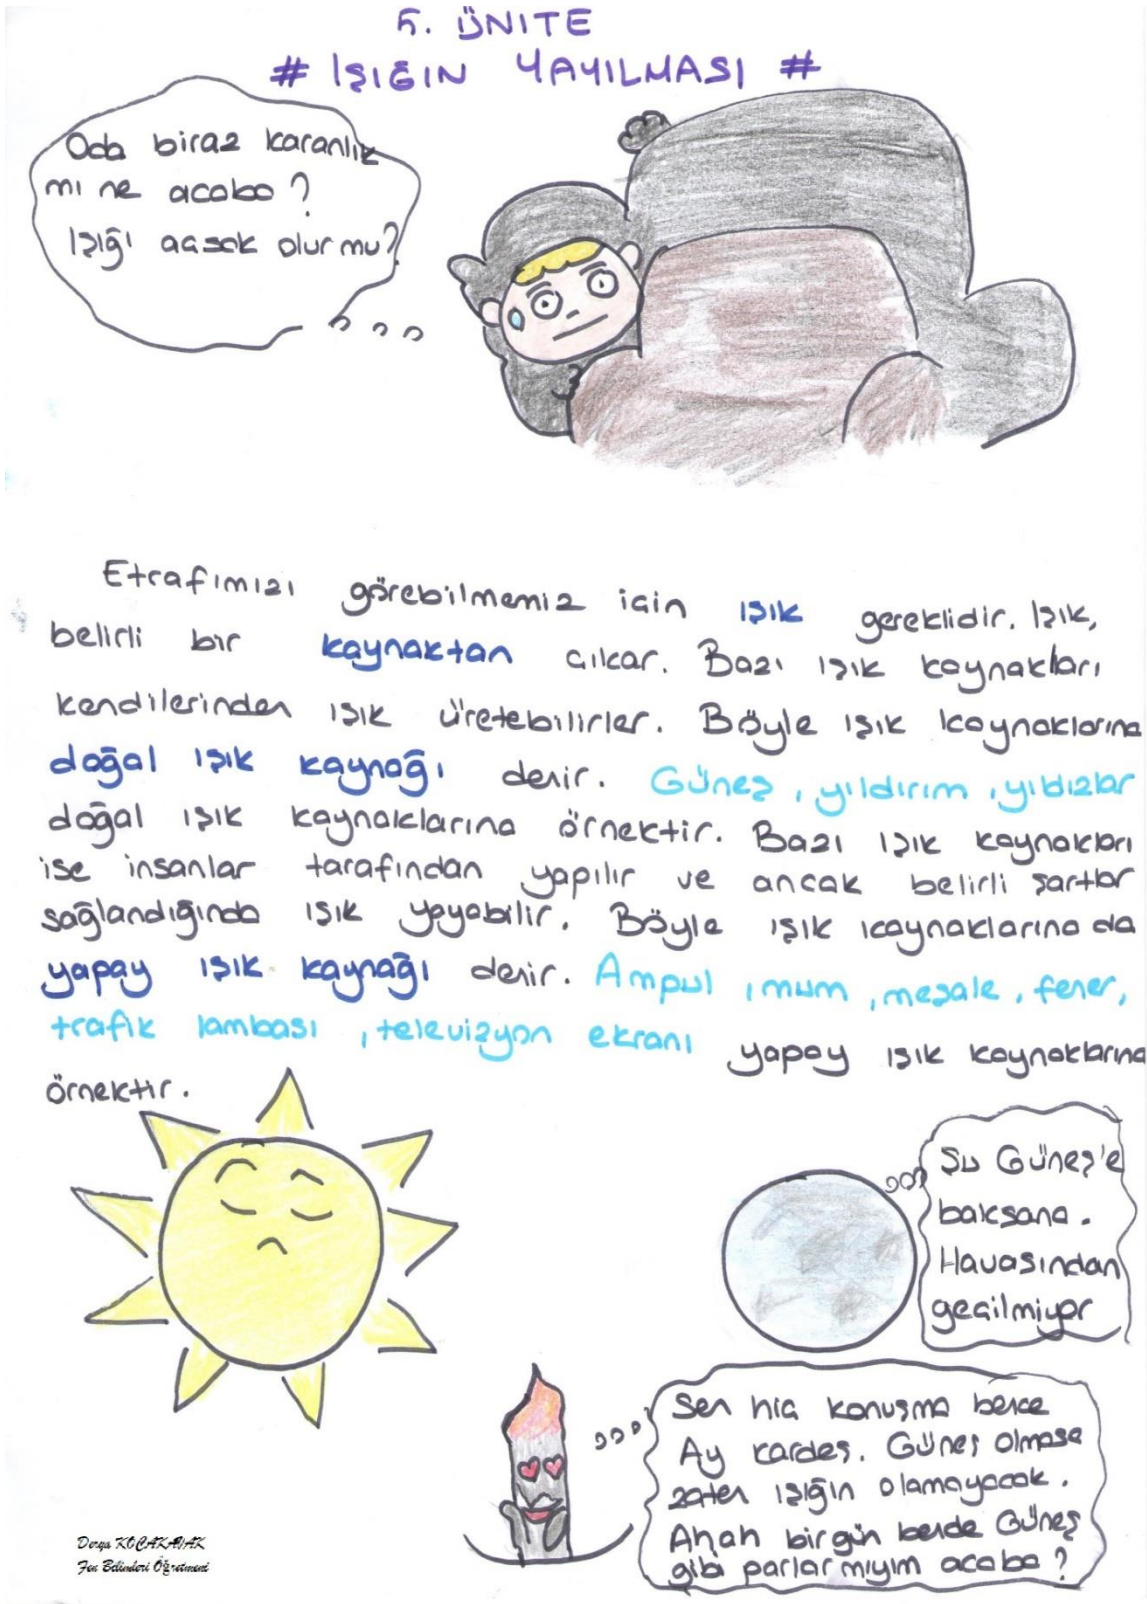 5. ÜNİTE
# IŞIĞIN YAYILMASI #
Oda biraz karanlık
mı ne acaba?
Işığı açsak olur mu?
Etrafımızı görebilmemiz için ışık gereklidir. Işık,
belirli bir kaynaktan çıkar. Bazı ışık kaynakları
kendilerinden ışık üretebilirler. Böyle ışık kaynaklarına
doğal ışık kaynağı denir. Güneş, yıldırım, yıldızlar
doğal ışık kaynaklarına örnektir. Bazı ışık kaynakları
ise insanlar tarafından yapılır ve ancak belirli şartlar
sağlandığında ışık yayabilir. Böyle ışık kaynaklarına da
yapay ışık kaynağı denir. Ampul, mum, meşale, fener,
trafik lambası, televizyon ekranı yapay ışık kaynaklarına
örnektir.
Şu Güneş'e
baksana.
Havasından
geçilmiyor
Sen hiç konuşma bence
Ay kardeş. Güneş olmasa
zaten ışığın olamayacak.
Ahah bir gün bende Güneş
gibi parlar mıyım acaba?
Derya KOÇAKAVAK
Fen Bilimleri Öğretmeni